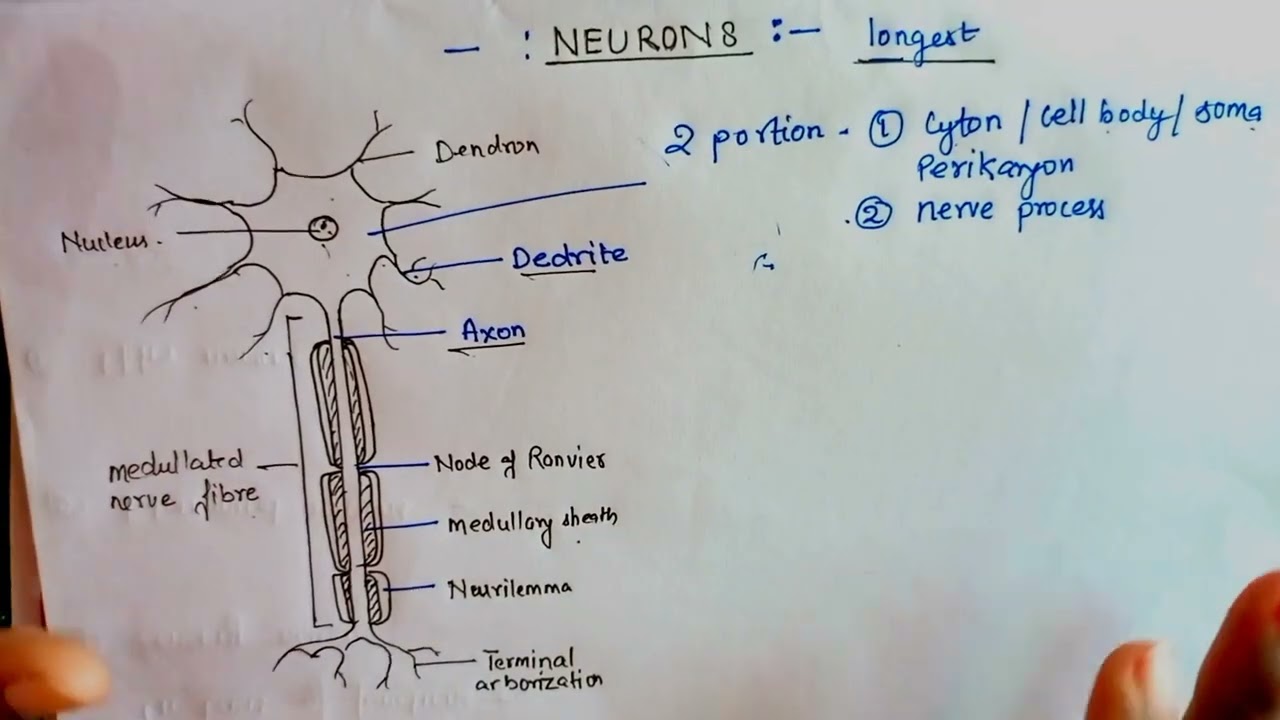 — : NEURONS :— longest
2 portion - ① Cyton / cell body / soma
Perikaryon
② nerve process
Dendron
Nucleus.
Dedrite
Axon
medullated
nerve fibre
Node of Ronvier
medullary sheath
Neurilemma
Terminal
arborization